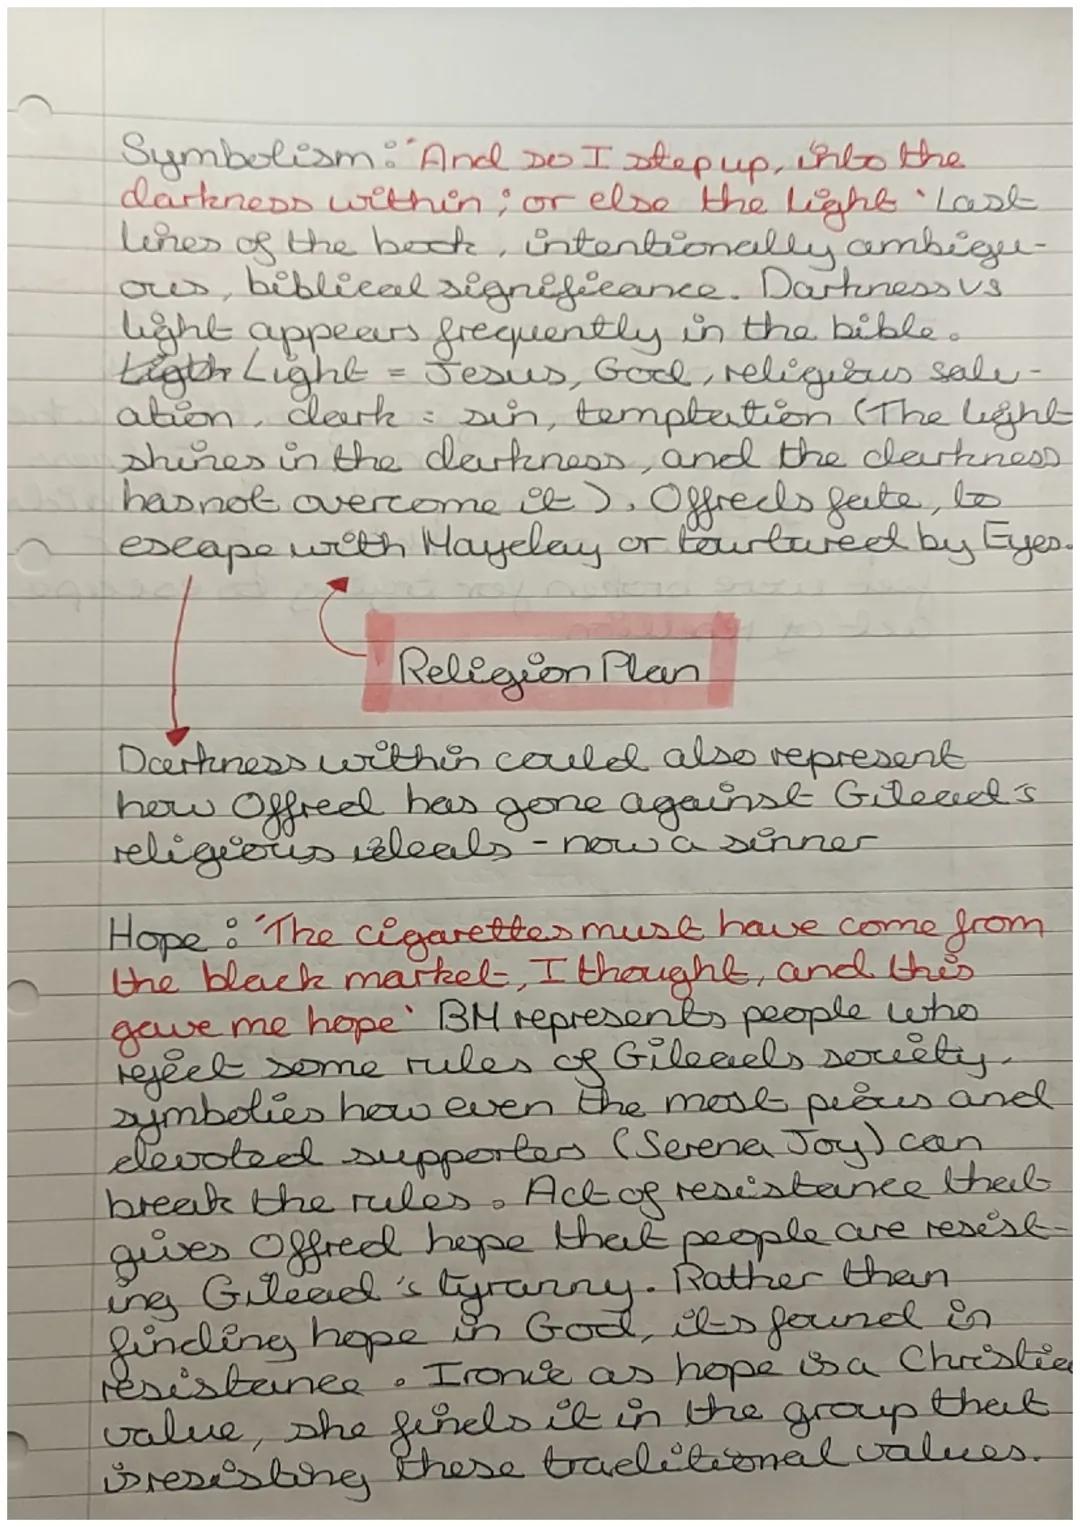 Symbolism: 'And so I step up, into the
darkness within; or else the light' Last
lines of the book, intentionally ambigu-
ous, biblical significance. Darkness vs
light appears frequently in the bible.
Ligth Light = Jesus, God, religious salv-
ation, dark = sin, temptation (The light
shines in the darkness, and the darkness
has not overcome it). Offreds fate, to
escape with Mayday or tourtured by Eyes.
Religion Plan
Darkness within could also represent
how Offred has gone against Gilead's
religious ideals - now a sinner
Hope: 'The cigarettes must have come from
the black market, I thought, and this
gave me hope' BM represents people who
reject some rules of Gileads society.
symbolies how even the most pious and
devoted supporters (Serena Joy) can
break the rules. Act of resistance that
gives Offred hope that people are resist-
ing Gilead's tyranny. Rather than
finding hope in God, its found in
resistance. Ironic as hope is a Christia
value, she finds it in the group that
is resisting these traditional values.